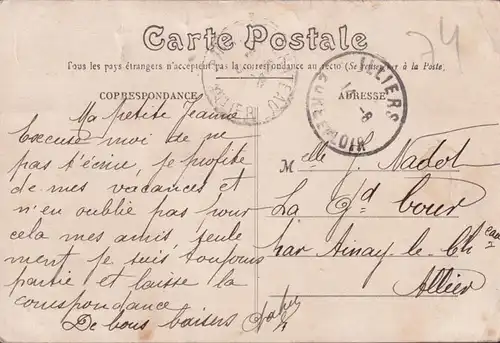 Carte Postale
74
Tous les pays étrangers n'acceptent pas la correspondance au recto (Se renseigner à la Poste)
CORRESPONDANCE
ADRESSE
ILLIERS
EURE-ET-LOIR
Ma petite Jeanne
Excuse moi de ne
pas t'écrire, je profite
de mes vacances et
n'en oublie pas pour
cela mes amis, seule
ment je suis toujours
partie et laisse la
correspondance
De bons baisers
Melle J. Nadot
La Gd Cour
par Ainay-le-Cheau
Allier